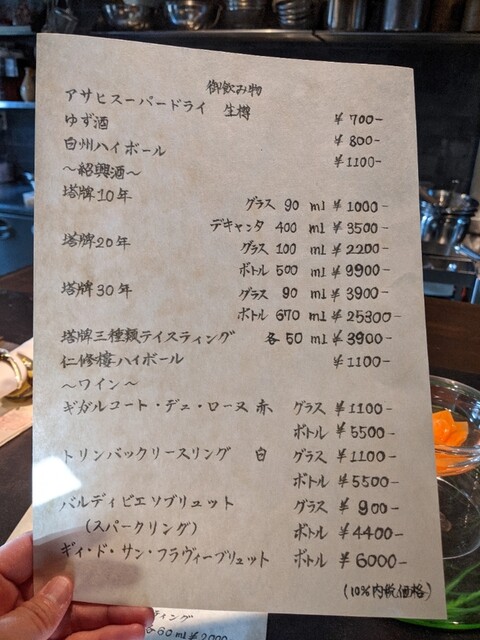 御飲み物
アサヒスーパードライ 生樽 ¥700-
ゆず酒 ¥800-
白州ハイボール ¥1100-
～紹興酒～
塔牌10年 グラス 90 ml ¥1000-
デキャンタ 400 ml ¥3500-
塔牌20年 グラス 100 ml ¥2200-
ボトル 500 ml ¥9900-
塔牌30年 グラス 90 ml ¥3900-
ボトル 670 ml ¥25300-
塔牌三種類テイスティング 各50 ml ¥3900-
仁修樓ハイボール ¥1100-
～ワイン～
ギガルコート・デュ・ローヌ 赤 グラス ¥1100-
ボトル ¥5500-
トリンバックリースリング 白 グラス ¥1100-
ボトル ¥5500-
バルディビエソブリュット グラス ¥900-
(スパークリング) ボトル ¥4400-
ギィ・ド・サン・フラヴィーブリュット ボトル ¥6000-
(10%内税価格)
ティング
60ml ¥2000